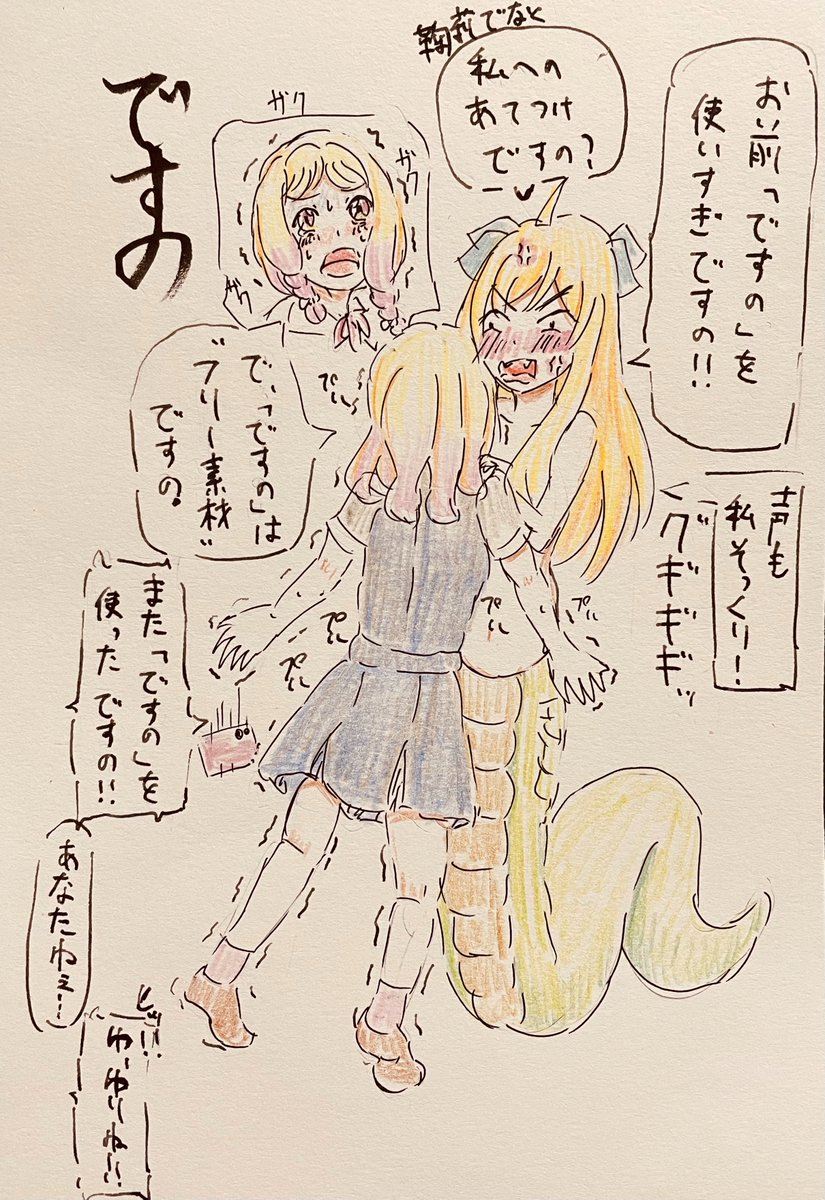 ですの
お前「ですの」を
使いすぎですの!!
鞠莉でなと
私への
あてつけ
ですの?
声も
私そっくり!
グギギギッ
ガク
ガク
ガク
で、「ですの」は
"フリー素材"
ですの。
プル
プル
プル
プル
プル
また「ですの」を
使ったですの!!
あなたねぇー!
ヒッ!!